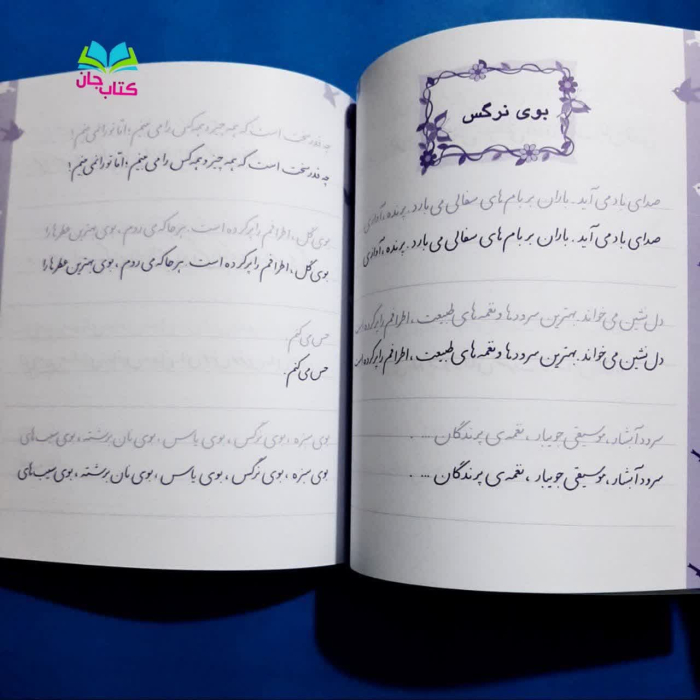 کتاب جان
بوی نرگس
صدای باد می آید. باران بر بام های سفالی می بارد. پرنده، آوازی
صدای باد می آید. باران بر بام های سفالی می بارد. پرنده، آوازی
دل نشین می خواند. بهترین سرودها و نغمه های طبیعت، اطرافم را پر کرده است
دل نشین می خواند. بهترین سرودها و نغمه های طبیعت، اطرافم را پر کرده است
سرود آبشار، موسیقی جویبار، نغمه ی پرندگان ....
سرود آبشار، موسیقی جویبار، نغمه ی پرندگان ....
چه قدر سخت است که همه چیز و همه کس را می بینم، اما تو را نمی بینم!
چه قدر سخت است که همه چیز و همه کس را می بینم، اما تو را نمی بینم!
بوی گل، اطرافم را پر کرده است. هر جا که می روم، بوی بهترین عطرها را
بوی گل، اطرافم را پر کرده است. هر جا که می روم، بوی بهترین عطرها را
حس می کنم.
حس می کنم.
بوی سبزه، بوی نرگس، بوی یاس، بوی نان برشته، بوی سیب های
بوی سبزه، بوی نرگس، بوی یاس، بوی نان برشته، بوی سیب های